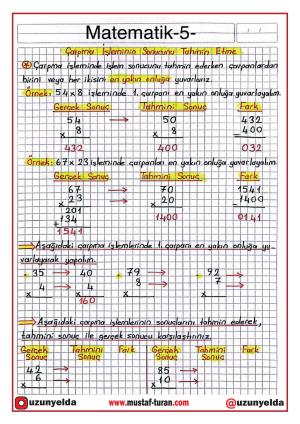 Matematik-5-
Çarpma İşleminin Sonucunu Tahmin Etme
Çarpma işleminde işlem sonucunu tahmin ederken çarpanlardan
birini veya her ikisini en yakın onluğa yuvarlarız.
Örnek: 54 x 8 işleminde 1. çarpanı en yakın onluğa yuvarlayalım.
Gerçek Sonuç Tahmini Sonuç Fark
54 → 50 432
x 8 x 8 - 400
432 400 032
Örnek: 67 x 23 işleminde çarpanları en yakın onluğa yuvarlayalım.
Gerçek Sonuç Tahmini Sonuç Fark
67 → 70 1541
x 23 → x 20 - 1400
201 1400 0141
+ 134
1541
Aşağıdaki çarpma işlemlerinde 1. çarpanı en yakın onluğa yu-
varlayarak yapalım.
35 → 40 79 → 92 →
x 4 x 4 x 8 x 7
160
Aşağıdaki çarpma işlemlerinin sonuçlarını tahmin ederek,
tahmini sonuç ile gerçek sonucu karşılaştırınız.
Gerçek Sonuç Tahmini Sonuç Fark Gerçek Sonuç Tahmini Sonuç Fark
42 → 85 →
x 6 x 10 →
uzunyelda www.mustaf-turan.com @uzunyelda